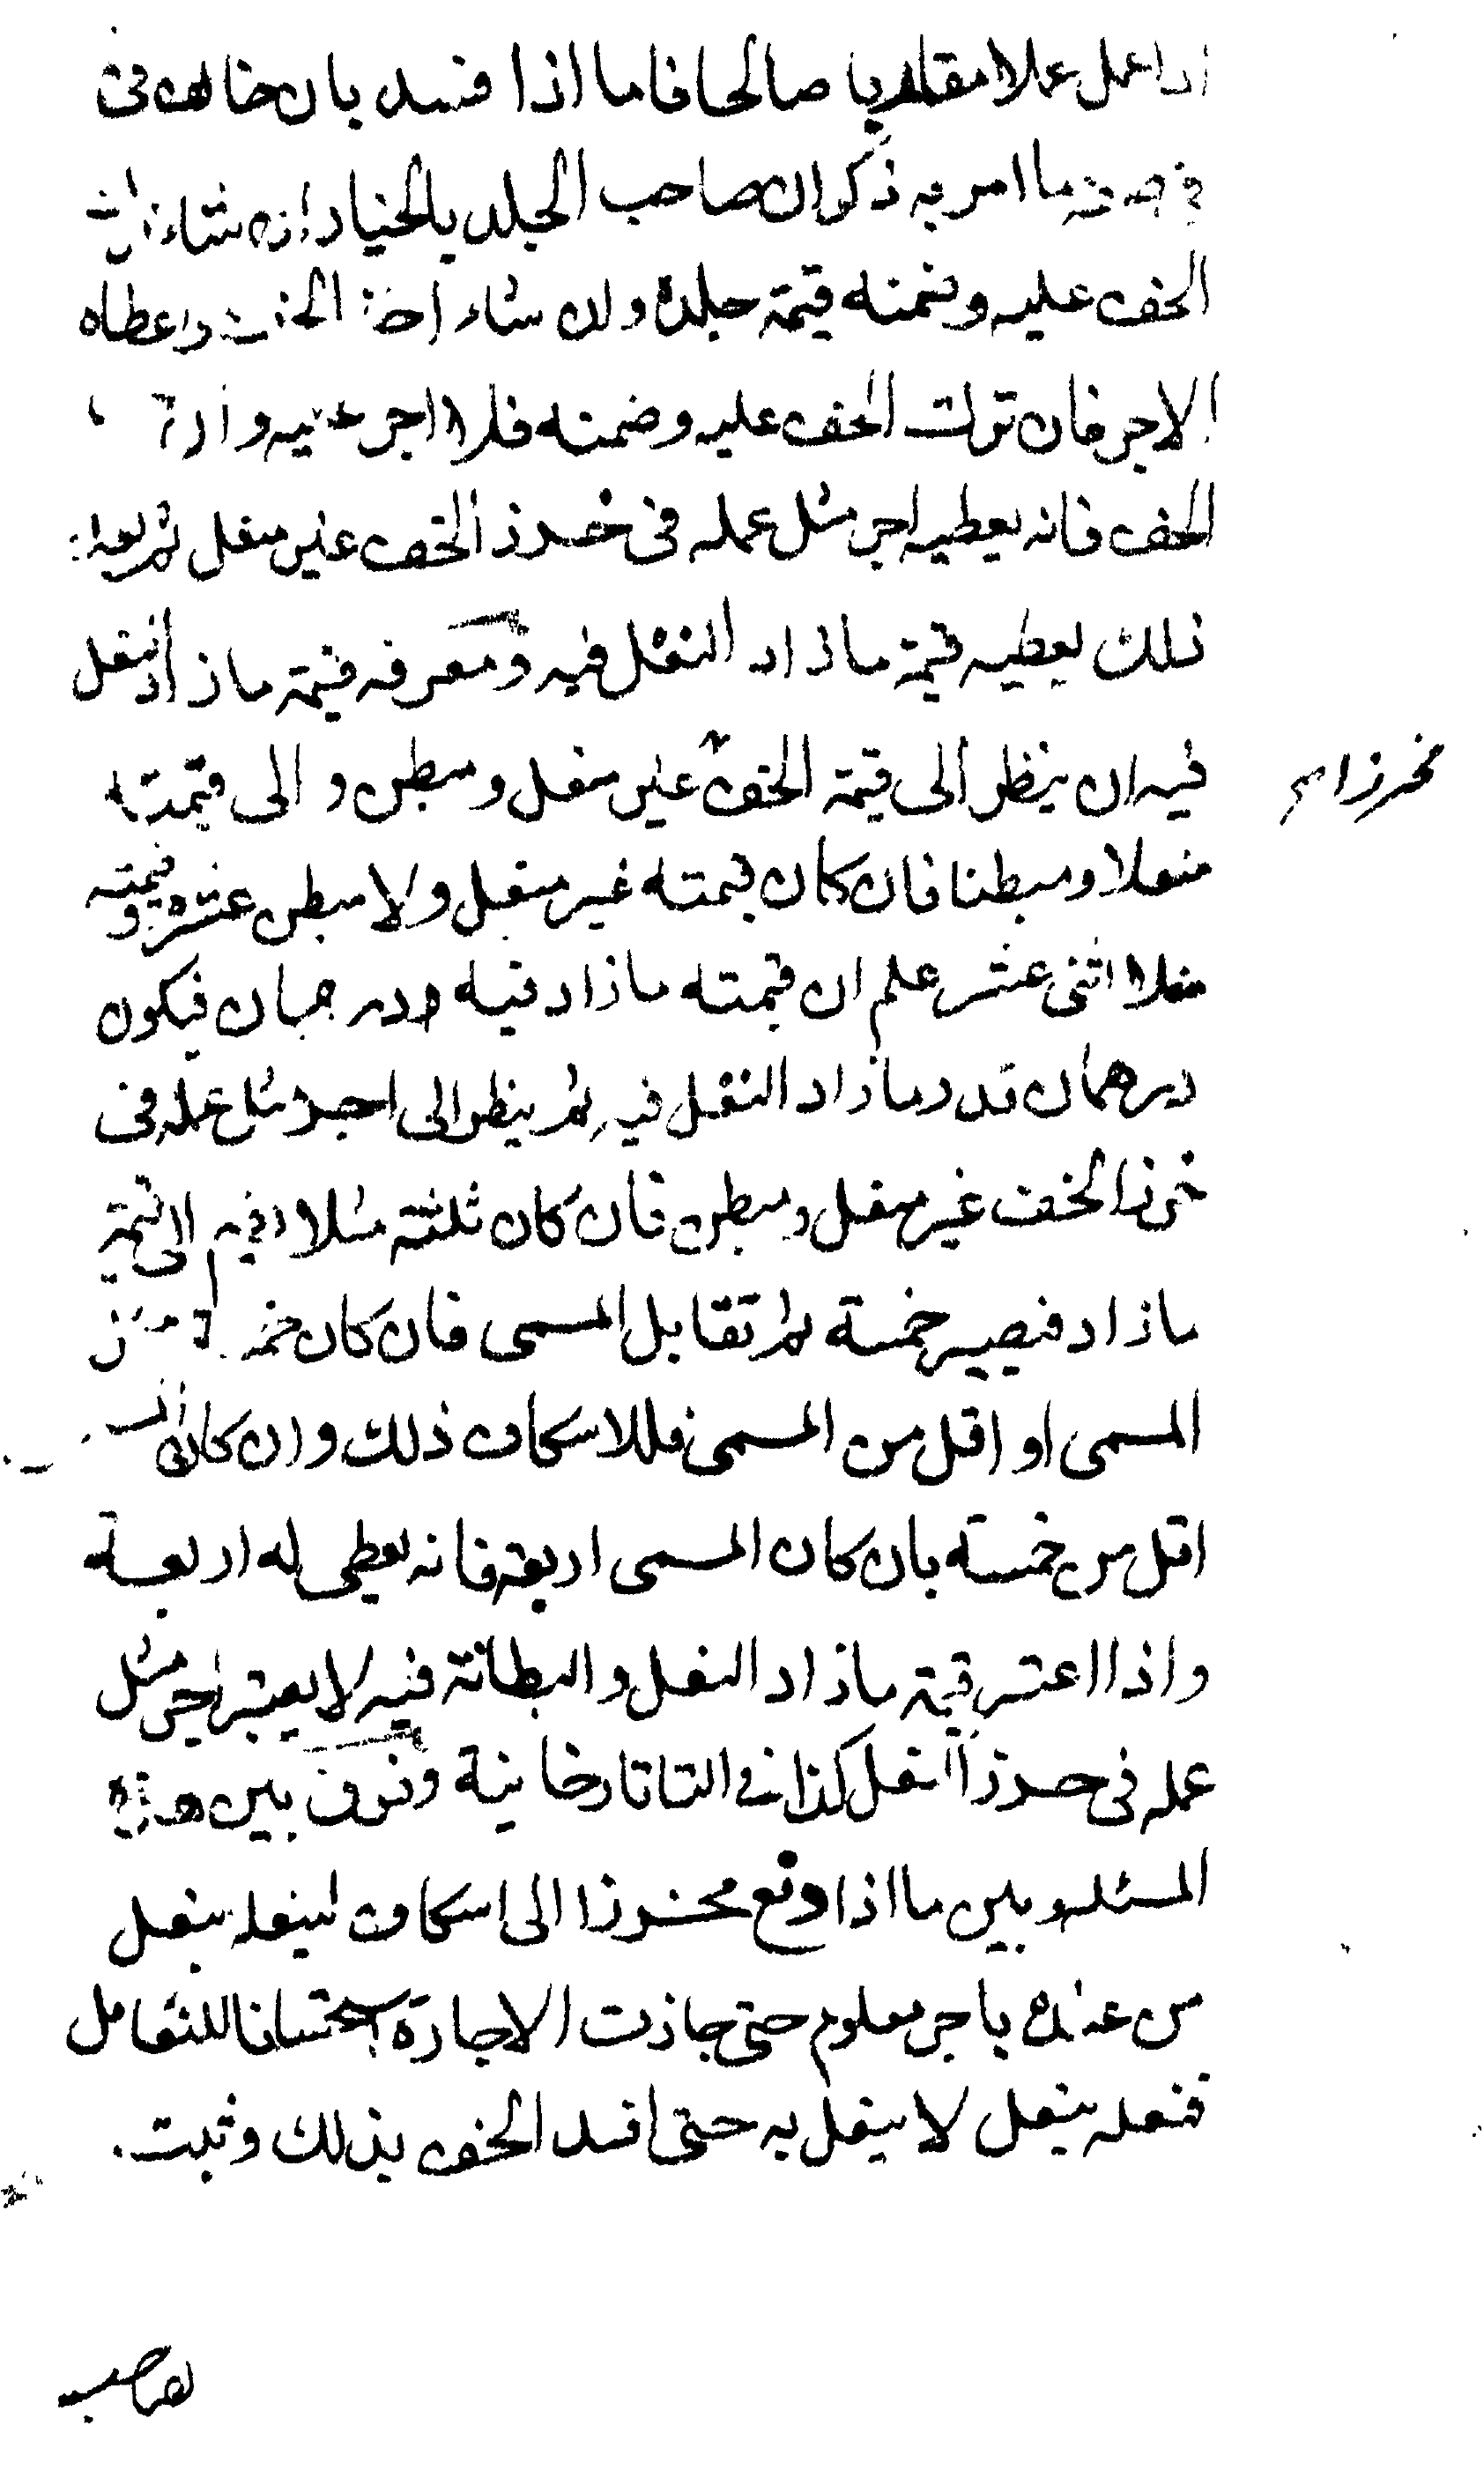 اذا عمل عملا مقاربا صالحا فاما اذا فسد بان خالف في
في صفة ما امر به ذكر ان صاحب الجلد بالخيار ان شاء ترك
الخف عليه وضمنه قيمة جلده وان شاء اخذ الخف واعطاه
الاجر فان ترك الخف عليه وضمنه فلا اجر عليه وان
الخف فانه يعطيه اجر مثل عمله في خرز الخف غير منعل ثم بعد
ذلك يعطيه قيمة ما زاد النعل فيه ومعرفه قيمة ما زاد النعل
فيه ان ينظر الى قيمة الخف غير منعل ومبطن و الى قيمته
مخرزا صح
منعلا ومبطنا فان كان قيمته غير منعل ولا مبطن عشرة وقيمته
منعلا اثنى عشر علم ان قيمته ما زاد فيه درهمان فيكون
درهمان قدر ما زاد النعل فيه ثم ينظر الى اجر مثل عمله في
خرز الخف غير منعل ومبطن فان كان ثلثة مثلا الى قيمة
ما زاد فيصير خمسة ثم تقابل المسمى فان كان خمسة
المسمى او اقل من المسمى فللاسكاف ذلك وان كان
اقل من خمسة بان كان المسمى اربعة فانه يعطى له اربعة
واذا اعتبر قيمة ما زاد النعل والبطانة فيه لا يعتبر اجر مثل
عمله في خرز النعل كذا في التاتارخانية وفرق بين هذه
المسئلة وبين ما اذا دفع مخروزا الى اسكاف لينعله بنعل
من عنده باجر معلوم حتى جازت الاجارة استحسانا للتعامل
فنعله بنعل لا ينعل به حتى افسد الخف بذلك وثبت
لصاحب